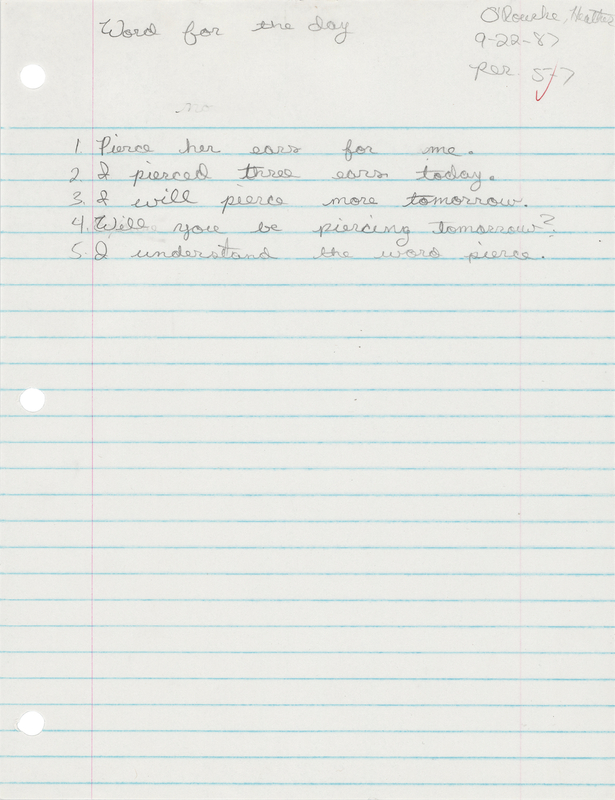 Word for the day
O'Rourke, Heather
9-22-87
per. 5-7
1. Pierce her ears for me.
2. I pierced three ears today.
3. I will pierce more tomorrow.
4. Will you be piercing tomorrow?
5. I understand the word pierce.